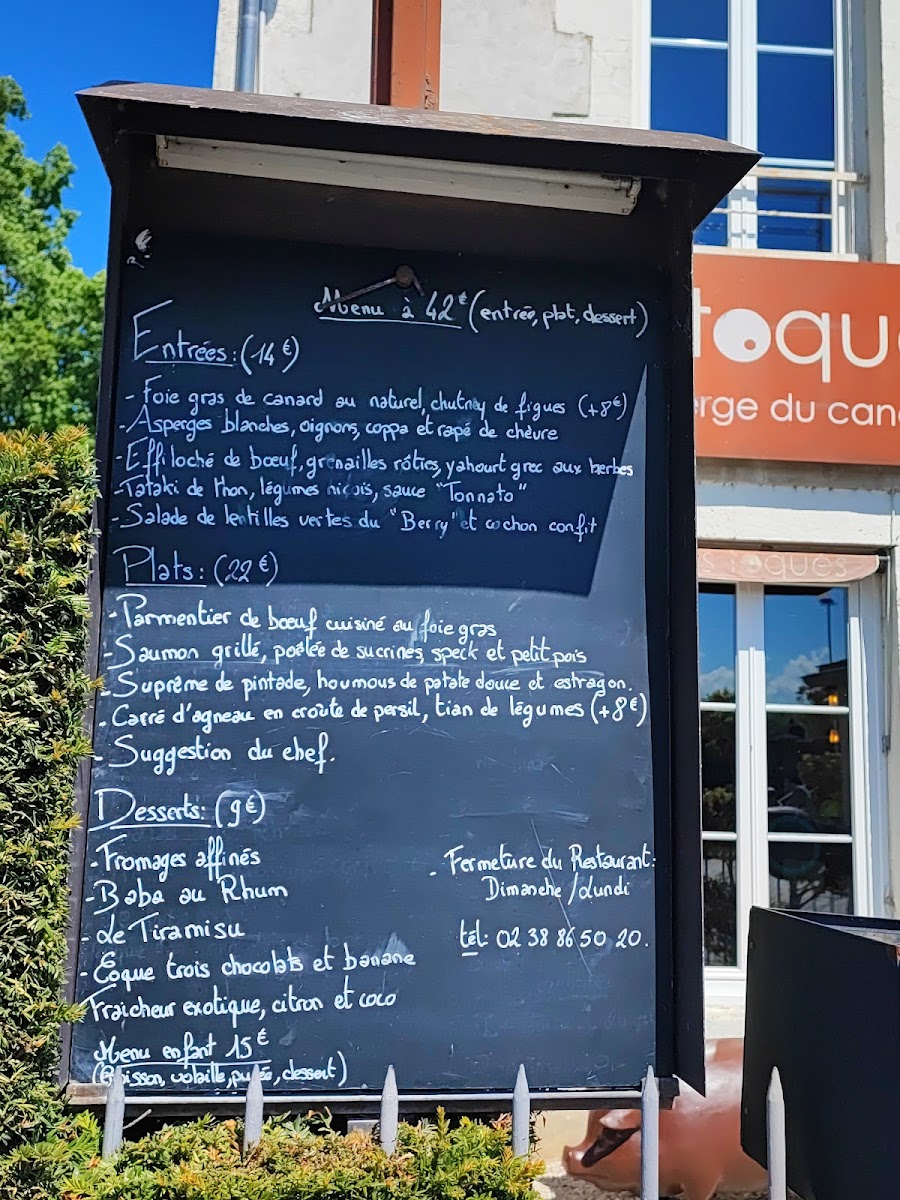 Menu à 42€ (entrée, plat, dessert)
Entrées: (14€)
- Foie gras de canard au naturel, chutney de figues (+8€)
- Asperges blanches, oignons, coppa et rapé de chèvre
- Effiloché de bœuf, grenailles rôties, yahourt grec aux herbes
- Tataki de thon, légumes niçois, sauce "Tonnato"
- Salade de lentilles vertes du "Berry" et cochon confit
Plats: (22€)
- Parmentier de bœuf cuisiné au foie gras
- Saumon grillé, poêlée de sucrines, speck et petit pois
- Suprême de pintade, houmous de patate douce et estragon.
- Carré d'agneau en croûte de persil, tian de légumes (+8€)
- Suggestion du chef.
Desserts: (9€)
- Fromages affinés
- Baba au Rhum
- Le Tiramisu
- Coque trois chocolats et banane
Fraicheur exotique, citron et coco
Menu enfant 15€
(Boisson, volaille, purée, dessert)
- Fermeture du Restaurant:
Dimanche / Lundi
tél: 02 38 86 50 20.
toqu
erge du can
s toques